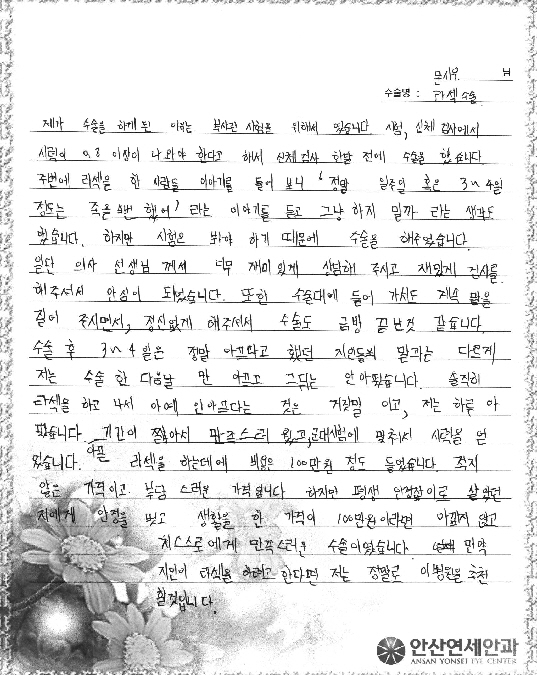 문시우 님
수술명 : 라섹 수술
제가 수술을 하게 된 이유는 부사관 시험을 위해서 였습니다 시험, 신체 검사에서
시력이 0.8 이상이 나와야 한다고 해서 신체검사 한달 전에 수술을 했습니다
주변에 라섹을 한 사람들 이야기를 들어 보니 '정말 일주일 혹은 3~4일
정도는 죽을 뻔 했어' 라는 이야기를 듣고 그냥 하지 말까 라는 생각도
했습니다. 하지만 시험은 봐야 하기 때문에 수술을 해주었습니다.
일단 의사 선생님 께서 너무 재미있게 상담해 주시고 재밌게 검사를
해주셔서 안심이 되었습니다. 또한 수술대에 들어 가서도 계속 말을
걸어 주시면서, 정신없게 해주셔서 수술도 금방 끝난것 같습니다.
수술 후 3~4일은 정말 아프다고 했던 지인들의 말과는 다르게
저는 수술 한 다음날 만 아프고 그뒤는 안아팠습니다. 솔직히
라섹을 하고 나서 아예 안아프다는 것은 거짓말 이고, 저는 하루 아
팠습니다. 기간이 짧아서 만족스러 웠고, 군대시험에 맞춰서 시력을 얻
었습니다. 라섹을 하는데에 비용은 100만원 정도 들었습니다. 적지
않은 가격이고 부담 스러운 가격입니다 하지만 평생 안경잡이로 살았던
저에게 안경을 벗고 생활을 한 가격이 100만원이라면 아깝지 않고
스스로에게 만족스러운 수술이었습니다. 만약
지인이 라식을 하려고 한다면 저는 정말로 이병원을 추천
할것입니다.
안산연세안과
ANSAN YONSEI EYE CENTER